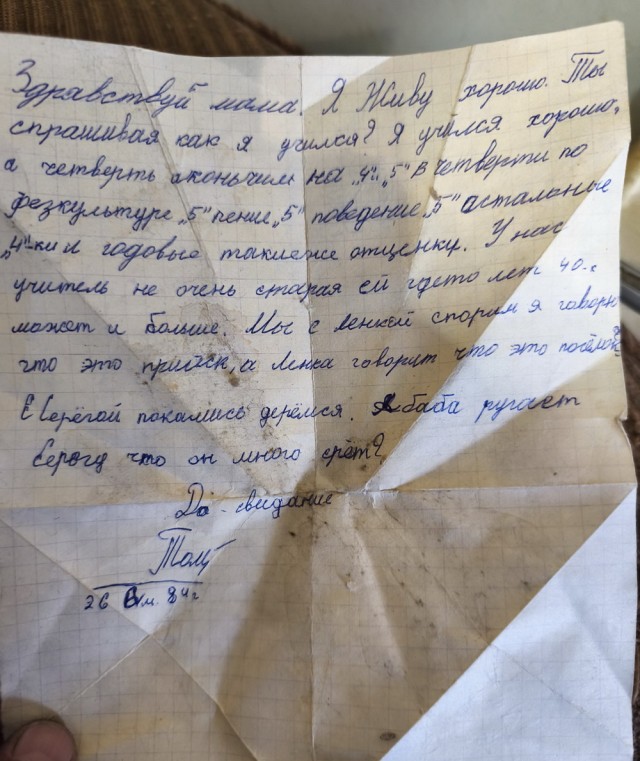 Здравствуй мама. Я Живу хорошо. Ты
спрашивая как я учился? Я учился хорошо,
а четверть окончил на „4"и„5" в четверти по
физкультуре „5" пение „5" поведение „5" астальные
„4"-ки и годовые такиеже отценки. У нас
учитель не очень старая ей гдето лет 40.
может и больше. Мы с Ленкой спорим я говорю
что это прииск, а Ленка говорит что это посёлок
С Серёгой покамись дерёмся. баба ругает
Серогу что он много срёт?
До-свидание
26 м. 84г